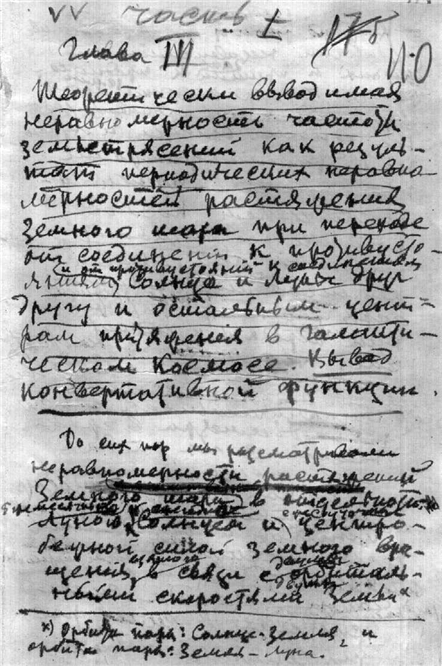 часть I
Глава III
Теоретически выводимая
неравномерность частоты
землетрясений как резуль-
тат периодических неравно-
мерностей растяжения
земного шара при переходе
от соединений к противусто-
яниям (и от противустояний к соединениям) Солнца и Луны друг
другу и остальным цент-
рам притяжения в галакти-
ческом Космосе. Вывод
конвертативной функции.
До сих пор мы рассматривали
неравномерности растяжений
Земного шара в
Луною Солнцем и центро-
бежной силой земного вра-
щения в связи с орбиталь-
ными скоростями Земли x)
x) Орбита пары: Солнце-Земля, и
орбита пары: Земля-Луна.